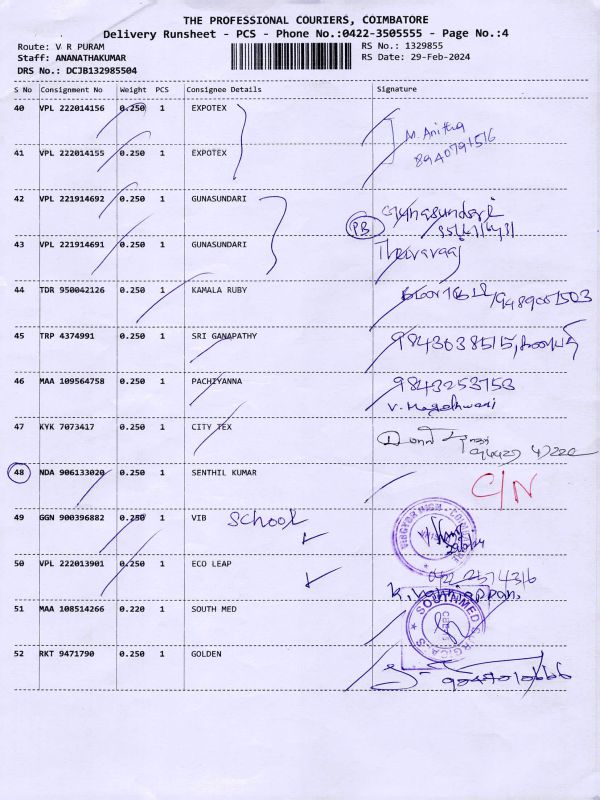 THE PROFESSIONAL COURIERS, COIMBATORE
Delivery Runsheet - PCS - Phone No.:0422-3505555 - Page No.:4
Route: V R PURAM
Staff: ANANATHAKUMAR
DRS No.: DCJB132985504
RS No.: 1329855
RS Date: 29-Feb-2024
S No Consignment No Weight PCS Consignee Details Signature
40 VPL 222014156 0.250 1 EXPOTEX
M. Anitha
8940791516
41 VPL 222014155 0.250 1 EXPOTEX
42 VPL 221914692 0.250 1 GUNASUNDARI Gunasundari
PB
43 VPL 221914691 0.250 1 GUNASUNDARI
44 TDR 950042126 0.250 1 KAMALA RUBY /9489051503
45 TRP 4374991 0.250 1 SRI GANAPATHY 9843038515,
46 MAA 109564758 0.250 1 PACHIYANNA 9843253753
V. Mageshwari
47 KYK 7073417 0.250 1 CITY TEX
48 NDA 906133020 0.250 1 SENTHIL KUMAR C/N
49 GGN 900396882 0.250 1 VIB School
50 VPL 222013901 0.250 1 ECO LEAP 0422 2574316
K. Valliappan.
51 MAA 108514266 0.220 1 SOUTH MED
SOUTHMED SURGICALS
52 RKT 9471790 0.250 1 GOLDEN